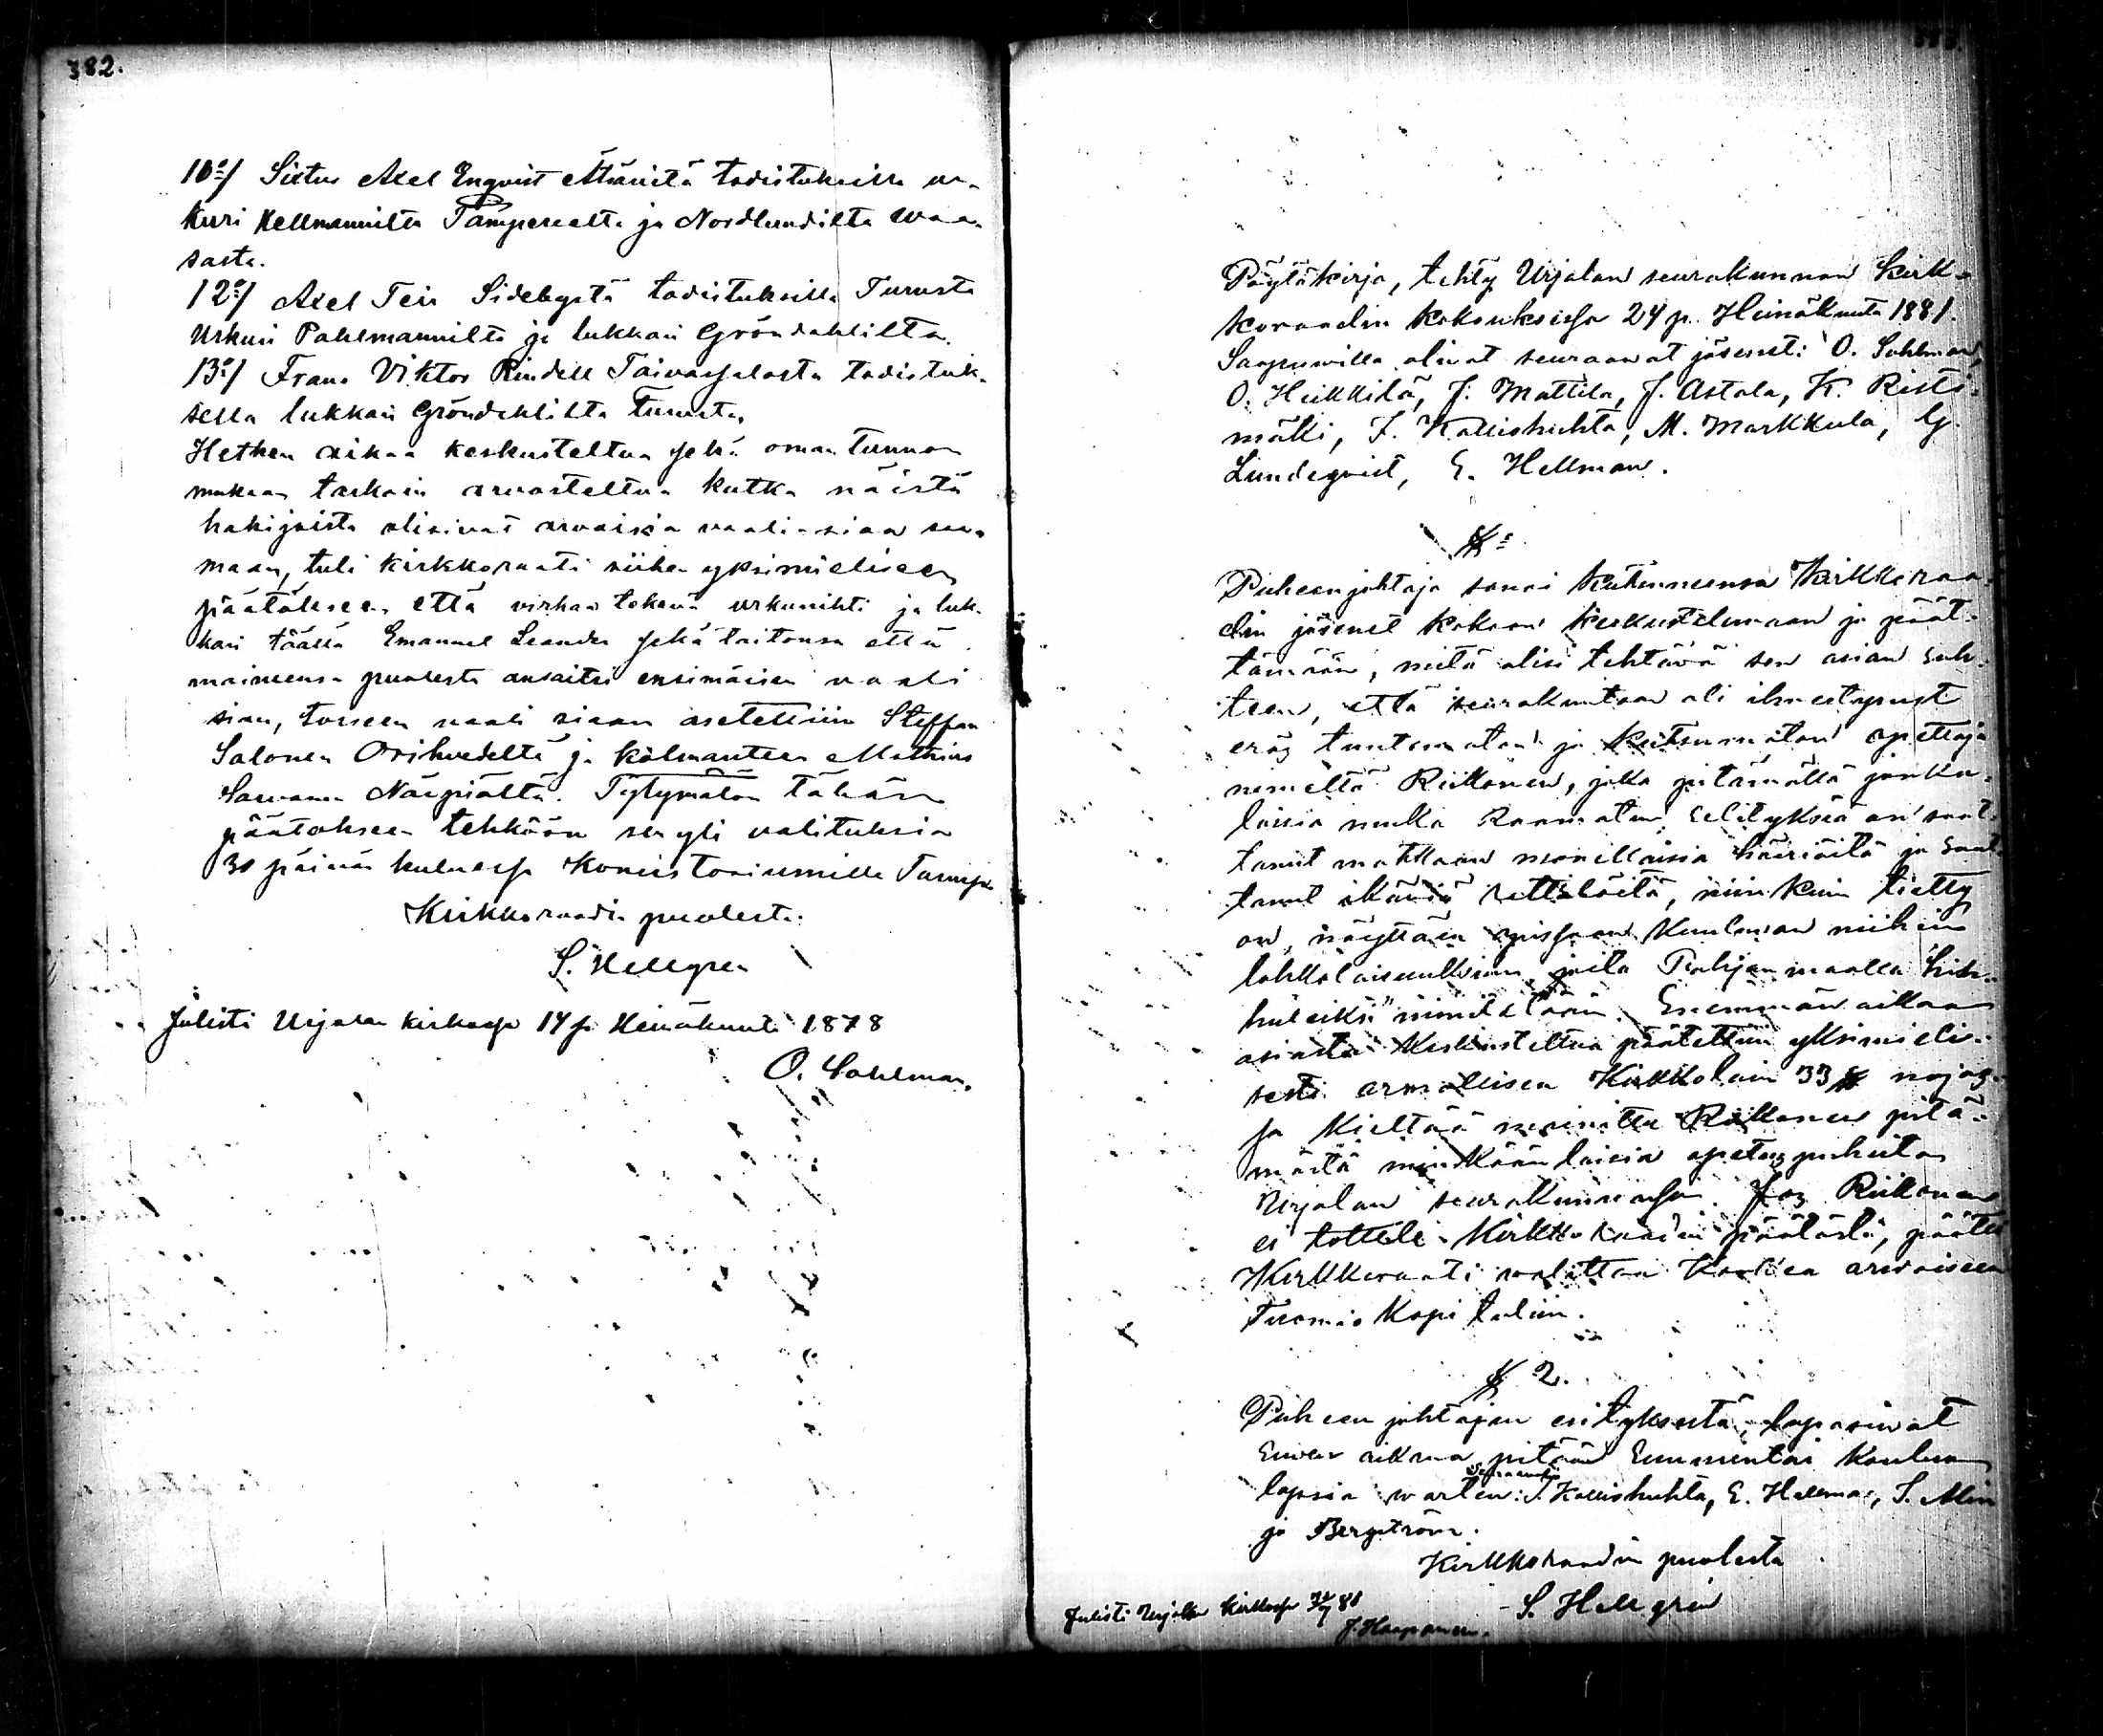 382.
10:/ Sixtus Axel Engvist Ätsäristä todistuksilla ur-
kuri Hellmannilta Tampereelta ja Nordlundilta Waa-
sasta.
12:/ Axel Teir Sidebystä todistuksilla Turusta
Urkuri Pahlmannilta ja lukkari Gröndahlilta.
13:/ Frans Viktor Rindell Taivassalosta todistuk-
sella lukkari Gröndahlilta Turusta.
Hetken aikaa keskusteltua sekä oman tunnon
mukaan tarkoin arvosteltua kutka näistä
hakijoista olisivat arvoisia vaali-siaa saa-
maan, tuli kirkkoraati siihen yksimieliseen
päätökseen että virkaa tekevä urkunisti ja luk-
kari täällä Emanuel Leander sekä taitonsa että
maineensa puolesta ansaitsi ensimäisen vaali
sian, toiseen vaali siaan asetettiin Steffan
Salonen Orihvedeltä ja kolmanteen Mathias
Närpiältä. Tytymätön tähän
päätökseen tehköön sen yli valituksia
30 päivän kuluessa Konsistoriumille Turussa
Kirkkoraadin puolesta:
S. Hellgren
Julisti Urjalan kirkossa 14 p. Heinäkuuta 1878
O. Sahlman.
383.
Pöytäkirja, tehty Urjalan seurakunnan Kirk-
koraadin kokouksessa 24 p. Heinäkuuta 1881.
Saapuvilla olivat seuraavat jäsenet: O. Sahlman,
O. Heikkilä, J. Mattila, J. Astala, K. Risti-
mäki, J. Kalliskuhta, M. Markkula, G.
Lundeqvist, E. Hellman.
§ 1
Puheenjohtaja sanoi kutsuneensa Kirkkoraa-
din jäsenet kokoon keskustelemaan ja päät-
tämään, mitä olisi tehtävä sen asian suh-
teen, että seurakuntaan oli ilmestynyt
eräs tuntematon ja kutsumaton opettaja
nimeltä Riikonen, joka pitämällä jonku-
laisia muka Raamatun selityksiä on saat-
tanut matkaan monellaisia häiriöitä ja saat-
tanut ikäviä rettelöitä, niin kuin tietty
on, näyttäen opissaan kuuluvan niihin
lahkolaisuuksiin joita Pohjanmaalla "hih-
huleiksi" nimitetään. Enemmän aikaa
asiasta keskusteltua päätettiin yksimieli-
sesti armollisen Kirkkolain 33 § nojas-
sa kieltää mainittu Riikonen pitä-
mästä minkäänlaisia opetus puheita
Urjalan seurakunnassa. Jos Riikonen
ei tottele Kirkkoraadin päätöstä, päätti
Kirkkoraati valittaa Korkea arvoiseen
Tuomio Kapituliin.
§ 2.
Puheen johtajan esityksestä, lupasivat
suven aikana pitää Sunnuntai koulua
lapsia varten seuraavat: J. Kalliskuhta, E. Hellman, S. Alin
ja Bergström.
Kirkkoraadin puolesta
S. Hellgren
Julisti Urjalan kirkossa 31/7 81
J. Haapanen.